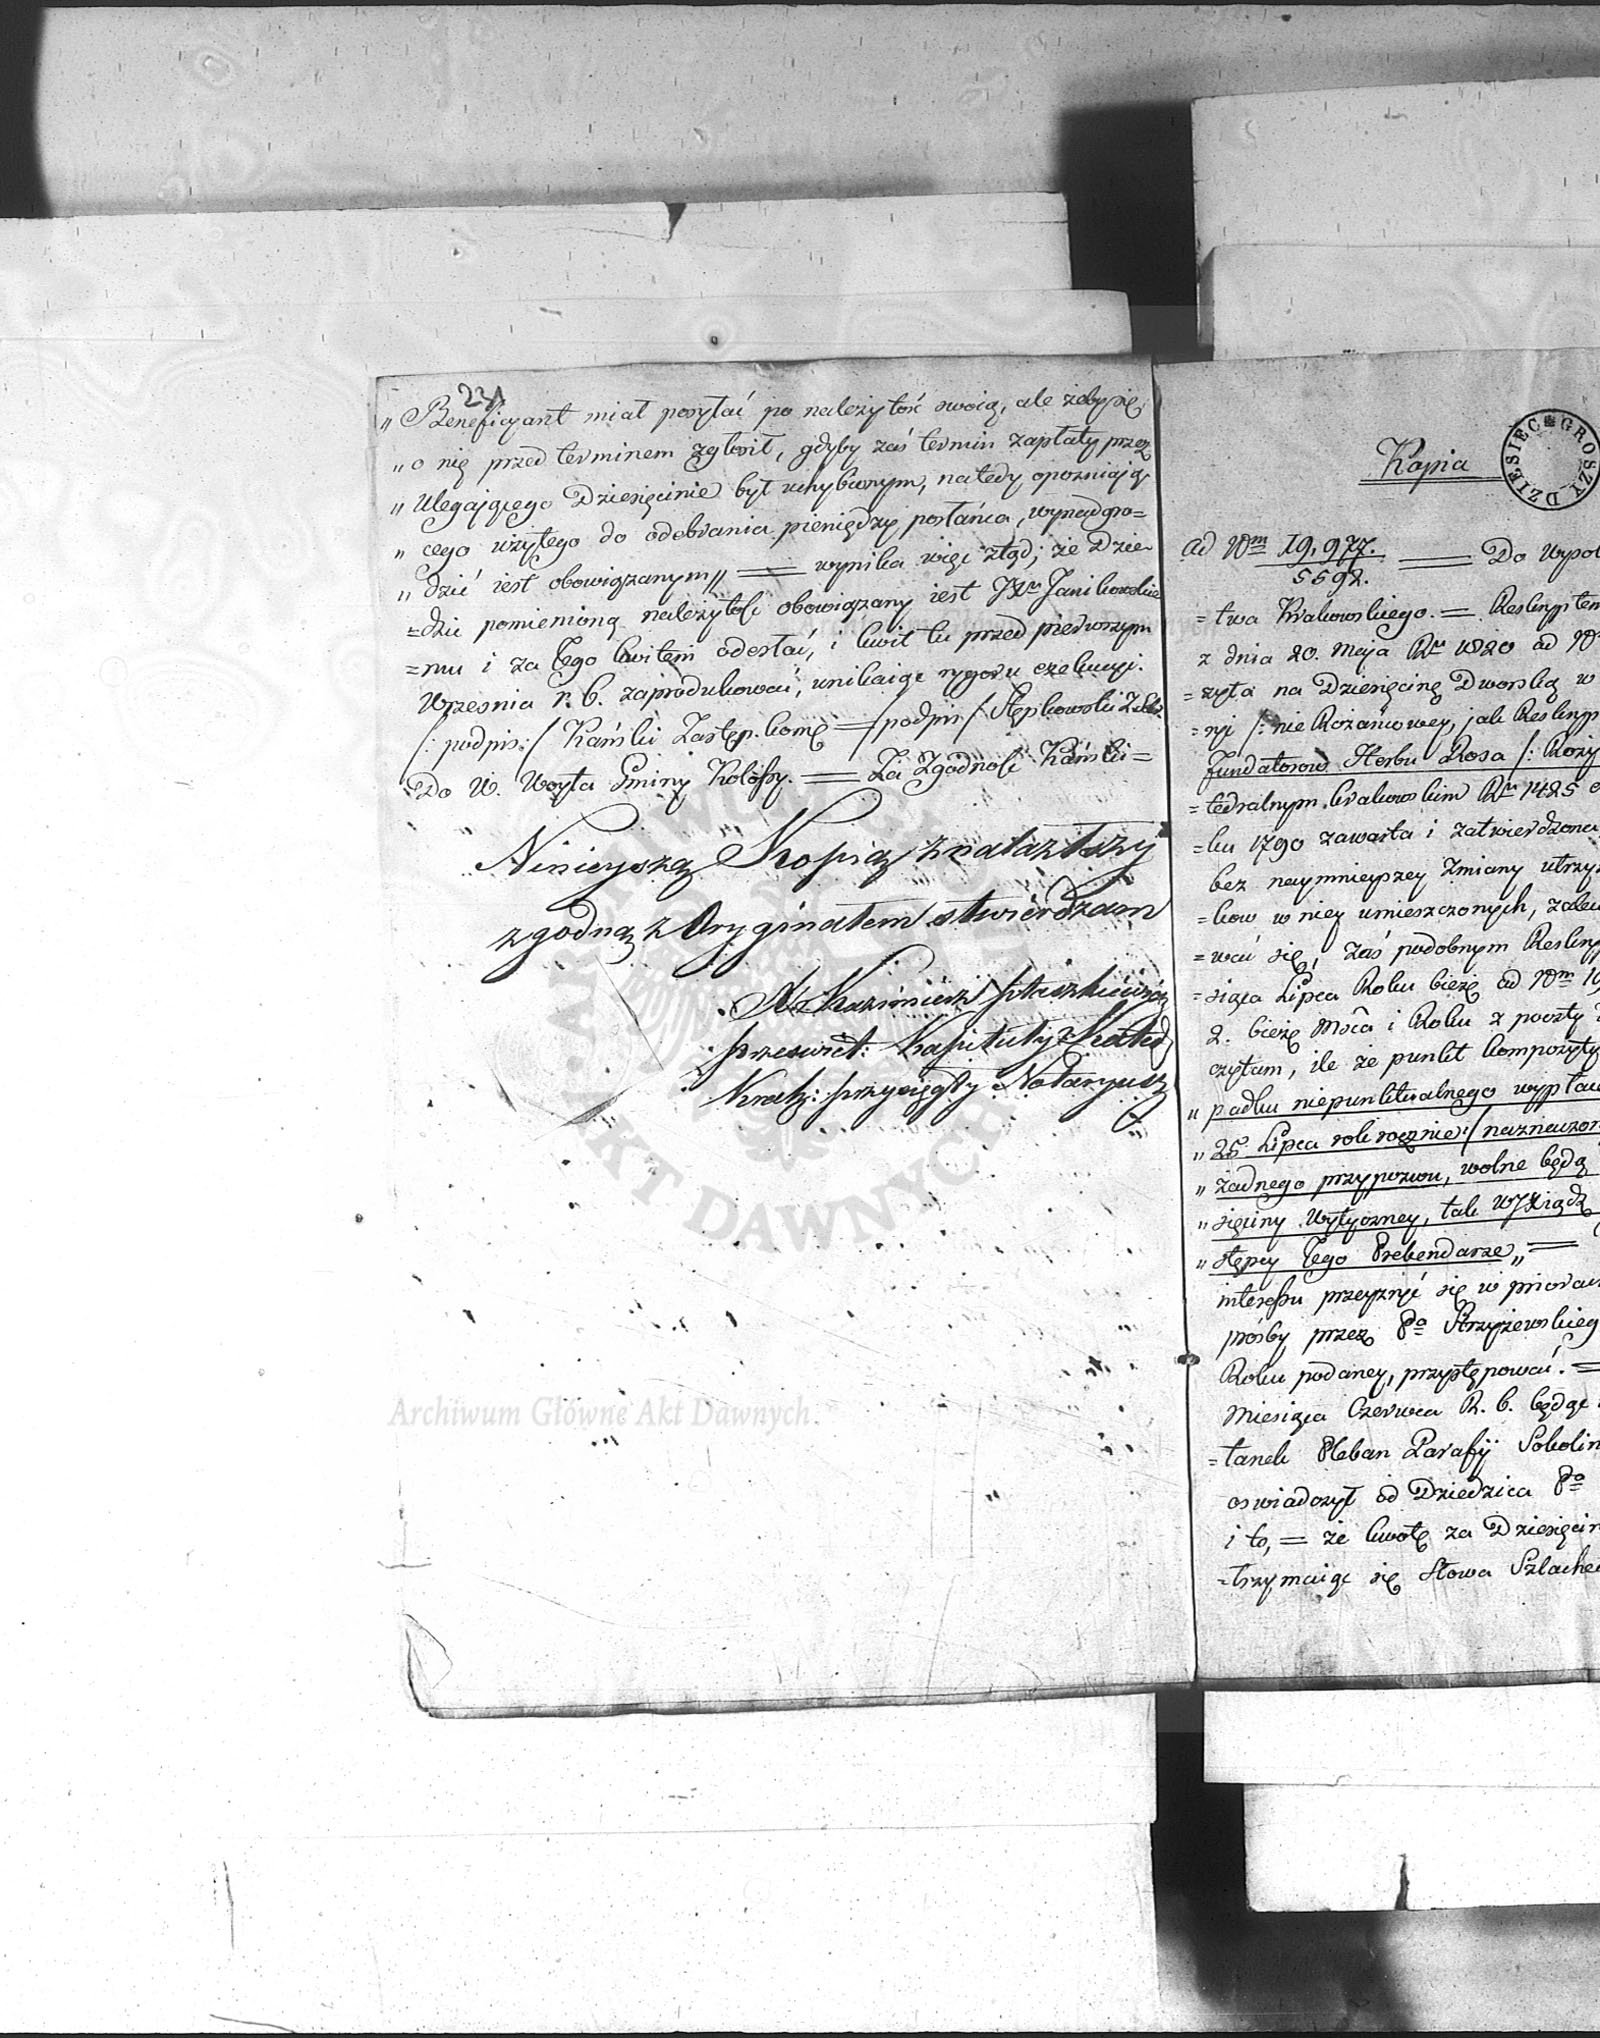 231
„ Beneficyant miał posyłać po należytość swoią, ale żeby się
„ o nię przed terminem zgłosił, gdyby zaś termin zapłaty przez
„ Ulegaiącego Dziesięcinie był uchybionym, natedy opozniaią=
„ cego użytego do odebrania pieniędzy posłańca, wynadgro=
„ dzić iest obowiązanym„ = wynika więc ztąd; że Dzie=
=dzic pomienioną należytość obowiązany iest JXu Janikowskie
=mu i za Jego kwitem odesłać, i kwit tu przed pierwszym
Września r. b. zaprodukować, unikaiąc rygoru exekucyi.
/: podpis :/ Kański Zastęp. Kom. = /podpis/ Stępkowski
Do W. Woyta Gminy Kolossy. = Za Zgodność Kański =
Ninieyszą Kopią znalazłszy
zgodną z Oryginałem stwierdzam
X Kazimierz Ptaszkiewicz
przeswiet: Kapituły Kated
Krak: przysięgły Notaryusz
Kopia
DZIESIEC GROSZY
Ad Nrm 19,977.
5592. = Do Wypo
=twa Krakowskiego. = Reskryptem
z dnia 20. Maja Ru 1820 ad N
=zyta na Dziesięcinę Dworską w
=nji /: nie Różańcowey, jak Reskryp
Fundatorow Herbu Rosa /: Róży
=tedralnym Krakowskim Ru 1425
=ku 1790 zawarta i zatwierdzona
bez naymnieyszey zmiany utrzy
=kow w niey umieszczonych, zale
=wać się, Zaś podobnym Reskryp
=siąca Lipca Roku bieżę ad Nrm 19,
2. bieżę Msca i Roku z poczty
czytam, ile że punkt kompozyty
„ padku niepunktualnego wypłac
„ 25 Lipca rok rocznie :/ naznaczon
„ żadnego przypozwu, wolne będą
„ sięciny Wytyczney, tak WJXiądz
„ stępcy Jego Prebendarze„ =
interessu przeyzryć się w
prośby, przez Pa Strzyżewskieg
Roku podaney, przystępować. =
Miesiąca Czerwca R. b. będąc
=tanek Pleban Parafji Sokolin
oswiadczył od Dziedzica Pa
i to, = że kwotę za Dziesięcin
=trzymaiąc się Słowa Szlachec
Archiwum Główne Akt Dawnych